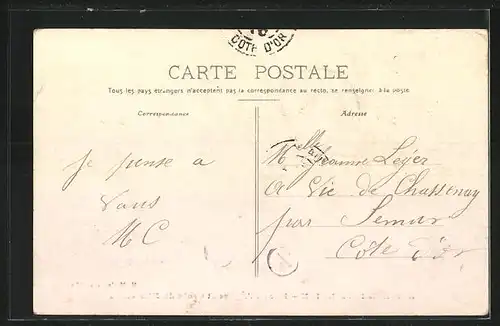 COTE D'OR
CARTE POSTALE
Tous les pays étrangers n'acceptent pas la correspondance au recto, se renseigner à la poste
Correspondance
Adresse
Je pense a
Vous
MC
Melle Jeanne Leger
a Vic de Chassenay
par Semur
Côte d'Or